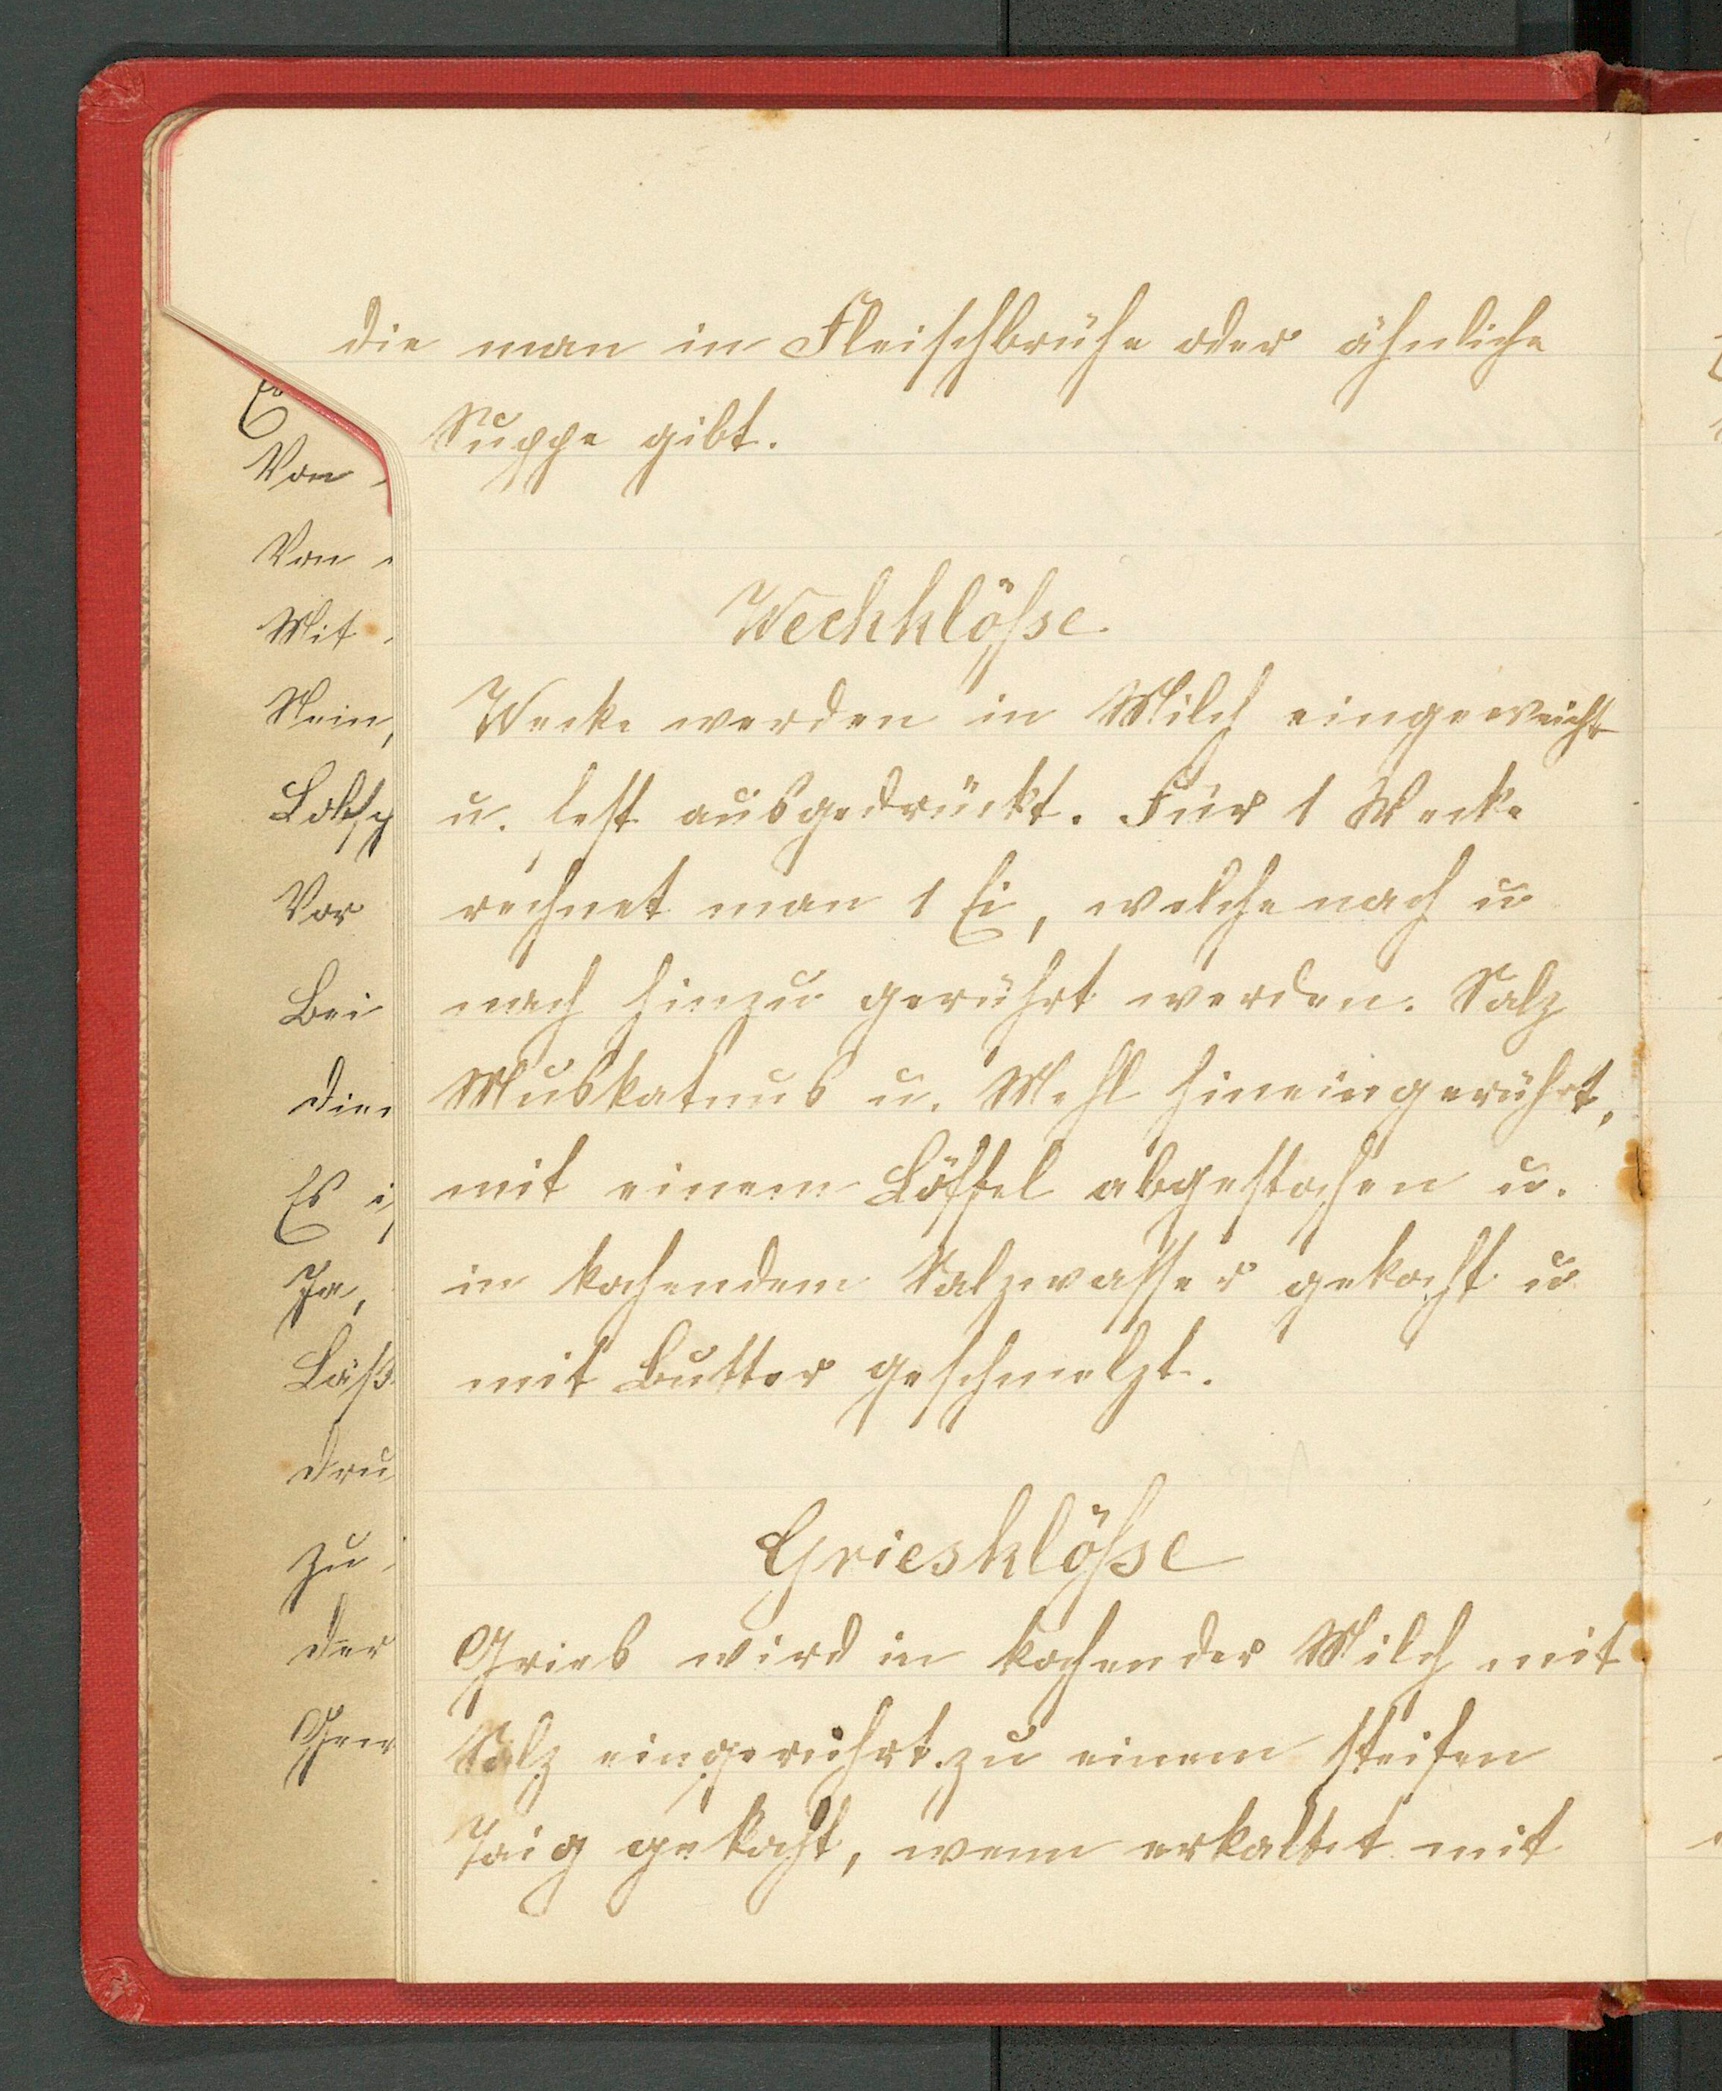 die man in Fleischbrühe oder ähnliche
Suppe gibt.
Weckklösse
Wecke werden in Milch eingeweicht
u. fest ausgedrückt. Für 1 Wecke
rechnet man 1 Ei, welche nach u
nach hinzu gerührt werden. Salz
Muskatnus u. Mehl hineingerührt,
mit einem Löffel abgestochen u.
in kochendem Salzwasser gekocht u
mit Butter geschmelzt.
Griesklösse
Gries wird in kochender Milch mit
Salz eingerührt zu einem steifen
Taig gekocht, wenn erkaltet mit
Von
Von
Mit
Nein,
Vor
Bei
Es
Ja,
Läß
dru
zu
der